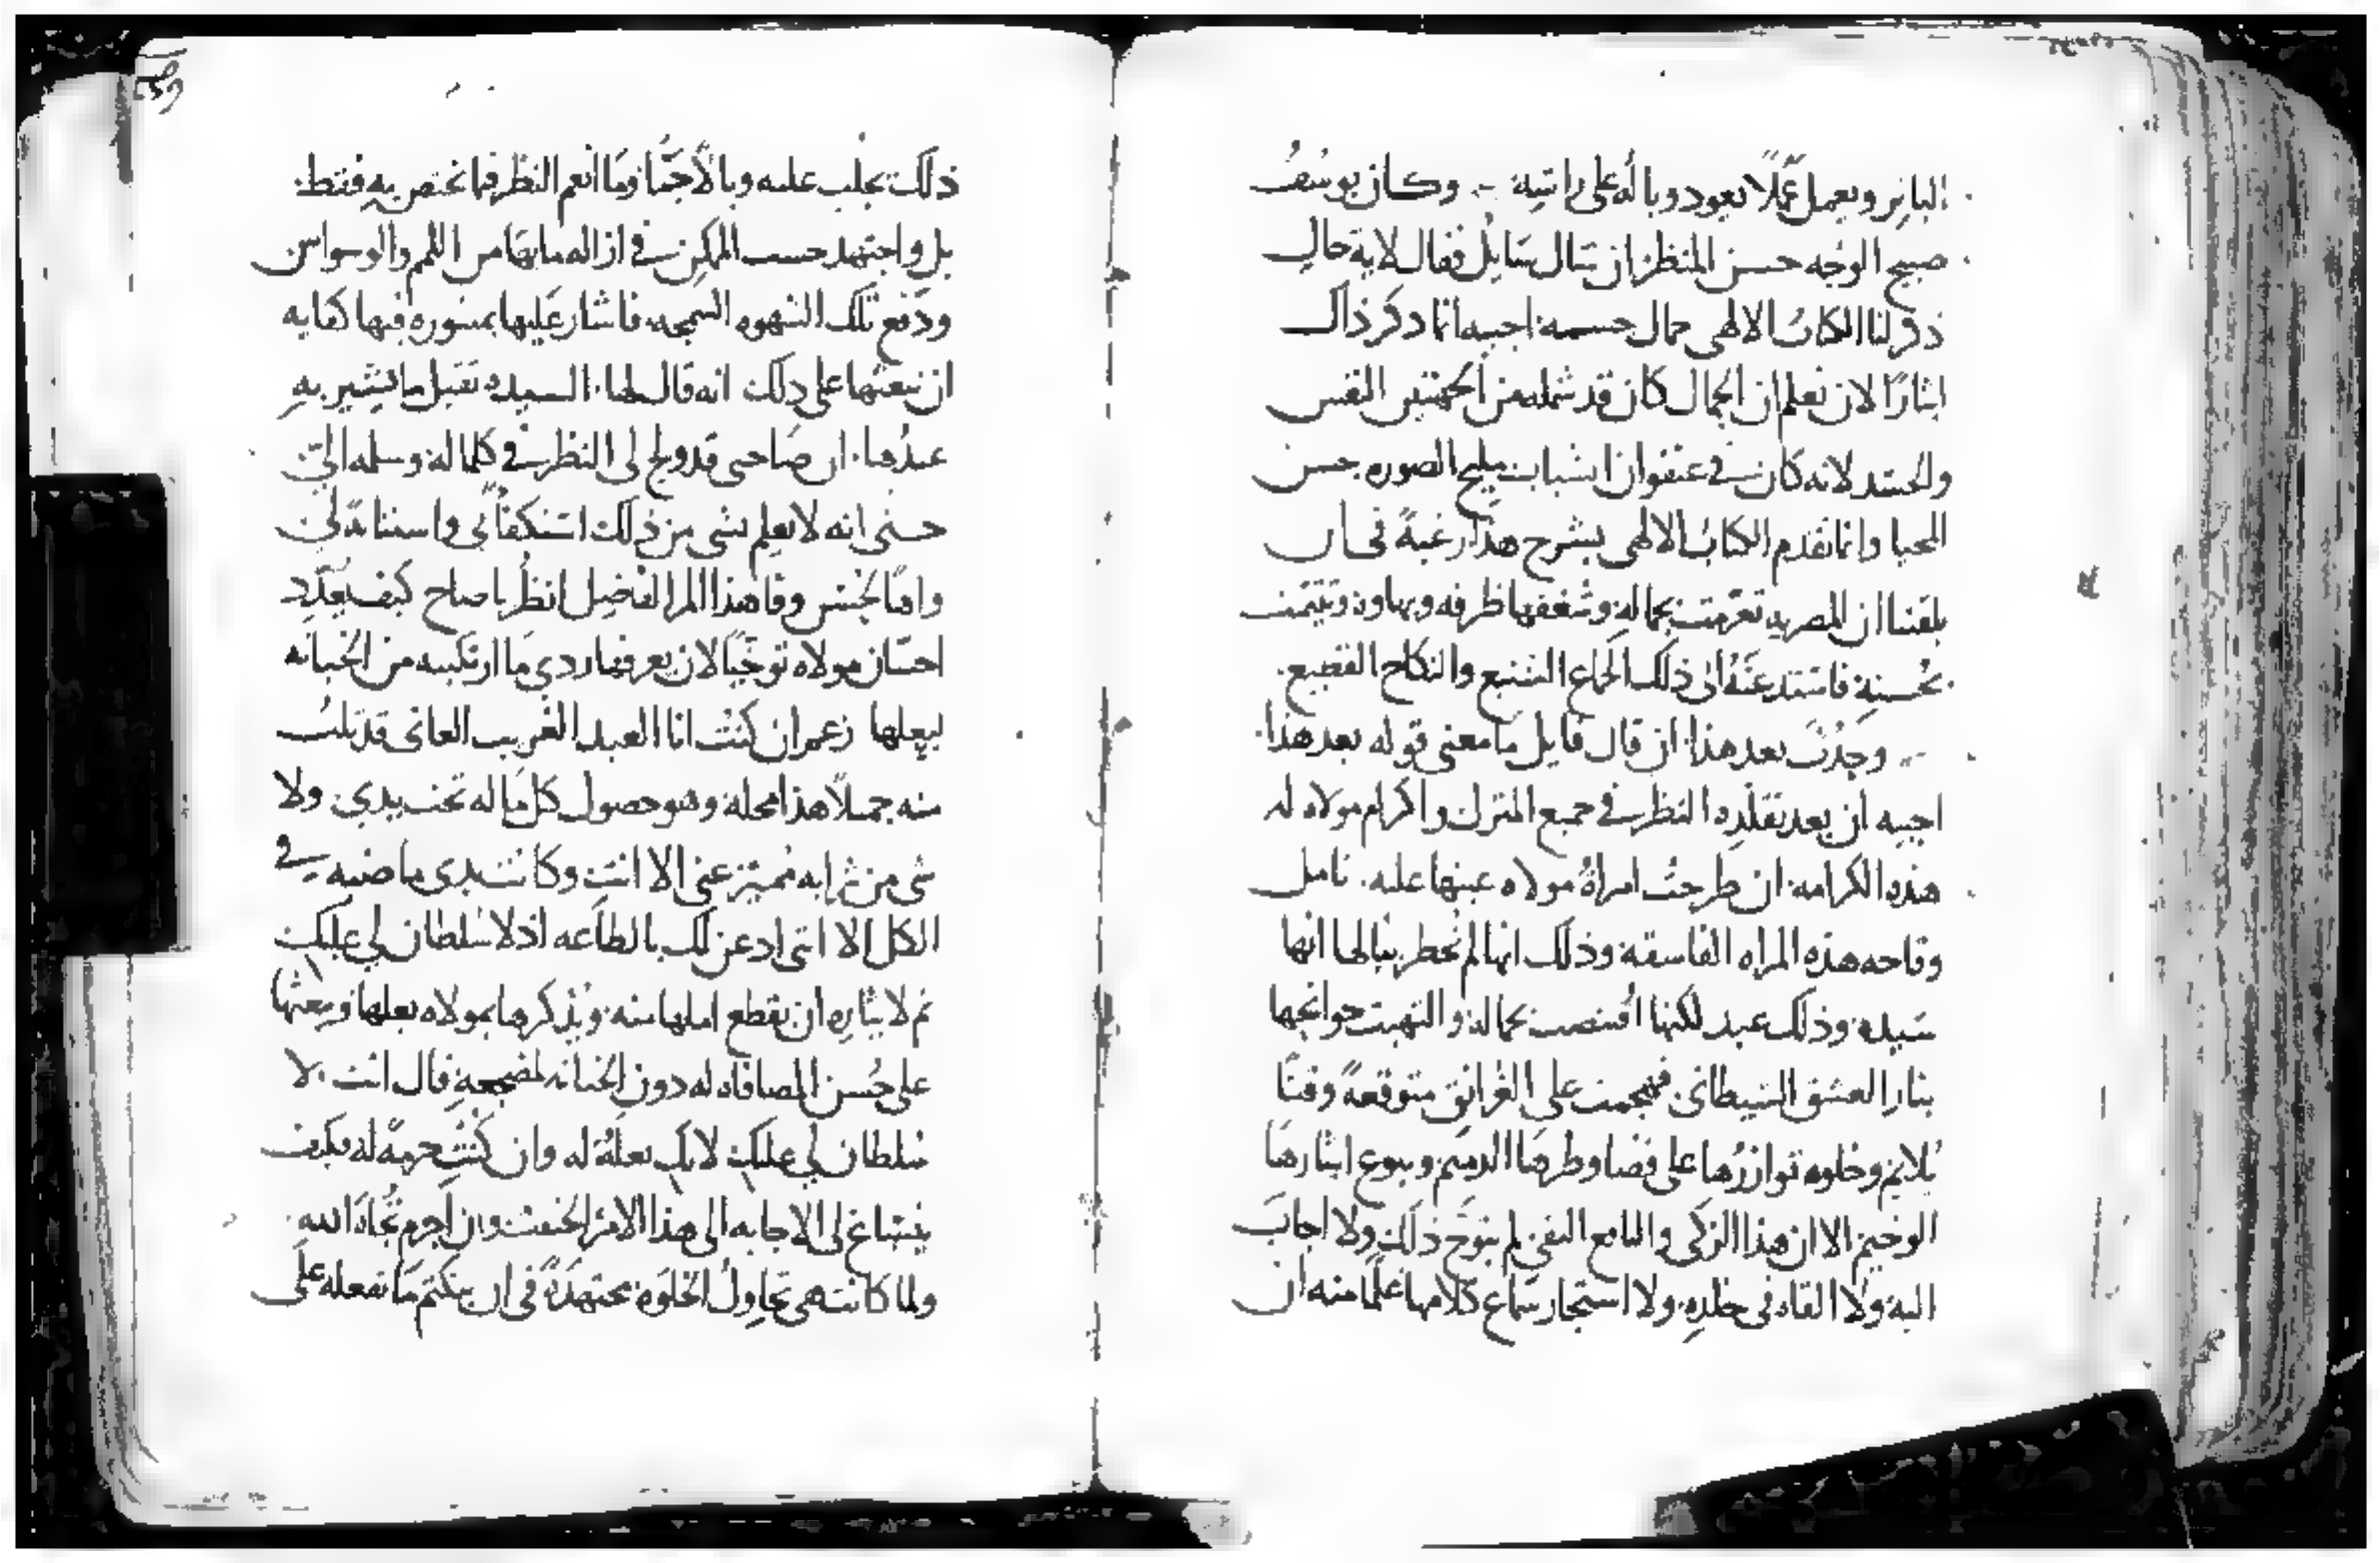 الباير ويعمل عملاً تعود وباله على راسه وكان يوسف
صبيح الوجه حسن المنظر ان سال سايل فقال لاية حال
ذكر لنا الكتاب الالهى جمال جسمه اجيبه انما ذكر ذاك
ايثارًا لان نعلم ان الجمال كان قد شمله من الجهتين النفس
والجسد لانه كان في عنفوان الشباب مليح الصوره حسن
المحيا وانما تقدم الكتاب الالهى بشرح هذا رغبةً في ان
بلغنا ان المصريه بجماله وشغفها ظرفه وبهاوه وتيتمت
بحسنه فاستدعته الى ذلك الجماع الشنيع والنكاح الفضيع
وحدث بعد هذا ان قال قايل ما معنى قوله بعد هذا
اجيبه ان بعد تقلده النظر في جميع المنزل واكرام مولاه له
هذه الكرامه ان طرحت امراة مولاه عينها عليه تامل
وقاحه هذه المراه الفاسقه وذلك انها لم تخطر ببالها انها
سيده وذلك عبد لكنها اقتنصت بجماله والتهبت جوانحها
بنار العشق الشيطانى فهجمت على الغرانق متوقعةً وقتًا
يلايم وخلوه توازرها على قضا وطرها الذميم وبلوع ايثارها
الوخيم الا ان هذا الزكى واليافع النقى لم يتوخ ذلك ولا اجاب
اليه ولا القاه في خلده ولا استجار سماع كلامها علمًا منه ان
ذلك يجلب عليه وبالاً جمًا وما انعم النظر فيما يختص به فقط
بل واجتهد حسب الممكن في ازاله ما بها من اللمم والوسواس
ودفع تلك الشهوه السمجه فاشار عليها بمشوره فيها كفايه
ان تبعثها على ذلك انه قال لها السيده تقبل ما يشير به
عبدها ان صاحبى قد ولج لى النظر في كلما له وسلمه الي
حتى انه لا يعلم بشى من ذلك واستنامة لى
واما بحسن وفا هذا المرا الفاضل انظر يا صاح كيف يعدد
احسان مولاه توخيًا لان يعرفها ردي ما ارتكبته من الخيانه
لبعلها زعم ان كنت انا العبد الغريب العانى قد نلت
منه جملاً هذا محله وهو حصول كل ما له تحت يدي ولا
شى من ثرايه متميز عنى الا انت وكانت يدى ماضيه في
الكل الا انتى ادعن لك بالطاعه اذ لا سلطان لي عليك
ثم لايثاره ان يقطع املها منه ويذكرها بمولاه بعلها ويبعثها
على حسن المصافاه له دون الخيانه لمضجعه قال انت لا
سلطان لي عليك لانك بعلةُ له وان كنت حرمه له فكيف
ينساغ لى الاجابه الى هذا الامر الخبيث وان اجرم تجاه الله
ولما كانت هى تحاول الخلوه مجتهدةً في ان ينكتم ما تفعله على